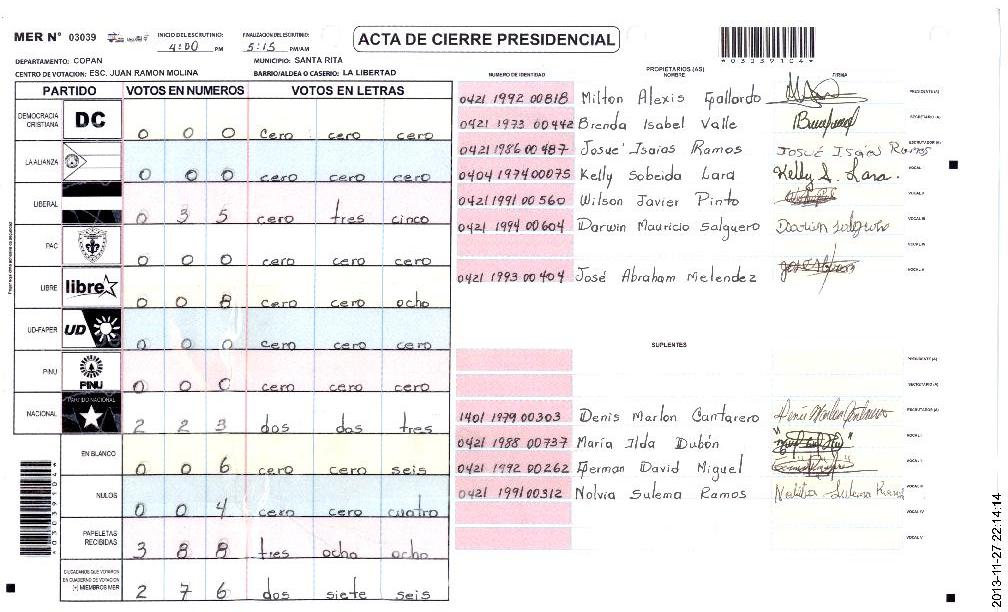 MER N° 03039
INICIO DEL ESCRUTINIO: 4:00 PM
FINALIZACION DEL ESCRUTINIO: 5:15 PM/AM
ACTA DE CIERRE PRESIDENCIAL
*03039104*
DEPARTAMENTO: COPAN
MUNICIPIO: SANTA RITA
CENTRO DE VOTACION: ESC. JUAN RAMON MOLINA
BARRIO/ALDEA O CASERIO: LA LIBERTAD
PARTIDO VOTOS EN NUMEROS VOTOS EN LETRAS
DEMOCRACIA CRISTIANA DC 0 0 0 cero cero cero
LA ALIANZA 0 0 0 cero cero cero
LIBERAL 0 3 5 cero tres cinco
PAC 0 0 0 cero cero cero
LIBRE libre 0 0 8 cero cero ocho
UD-FAPER UD 0 0 0 cero cero cero
PINU PINU 0 0 0 cero cero cero
NACIONAL PARTIDO NACIONAL 2 2 3 dos dos tres
EN BLANCO 0 0 6 cero cero seis
NULOS 0 0 4 cero cero cuatro
PAPELETAS RECIBIDAS 3 8 8 tres ocho ocho
CIUDADANOS QUE VOTARON
EN CUADERNO DE VOTACION
(+) MIEMBROS MER 2 7 6 dos siete seis
PROPIETARIOS (AS)
NUMERO DE IDENTIDAD NOMBRE FIRMA
0421 1992 00818 Milton Alexis Gallardo PRESIDENTE (A)
0421 1973 00442 Brenda Isabel Valle SECRETARIO (A)
0421 1986 00487 Josue' Isaias Ramos JOSUÉ ISaías Ramos ESCRUTADOR (A)
0404 1974 00075 Kelly Sobeida Lara Kelly S. Lara. VOCAL I
0421 1991 00560 Wilson Javier Pinto VOCAL II
0421 1994 00604 Darwin Mauricio Salguero Darwin Salguero VOCAL III
VOCAL IV
0421 1993 00404 José Abraham Melendez VOCAL V
SUPLENTES
PRESIDENTE (A)
SECRETARIO (A)
1401 1979 00303 Denis Marlon Cantarero Denis Marlon Cantarero ESCRUTADOR (A)
0421 1988 00737 María Ilda Dubón VOCAL I
0421 1992 00262 German David Miguel VOCAL II
0421 1991 00312 Nolvia Sulema Ramos VOCAL III
VOCAL IV
VOCAL V
*03039104*
2013-11-27 22:14:14